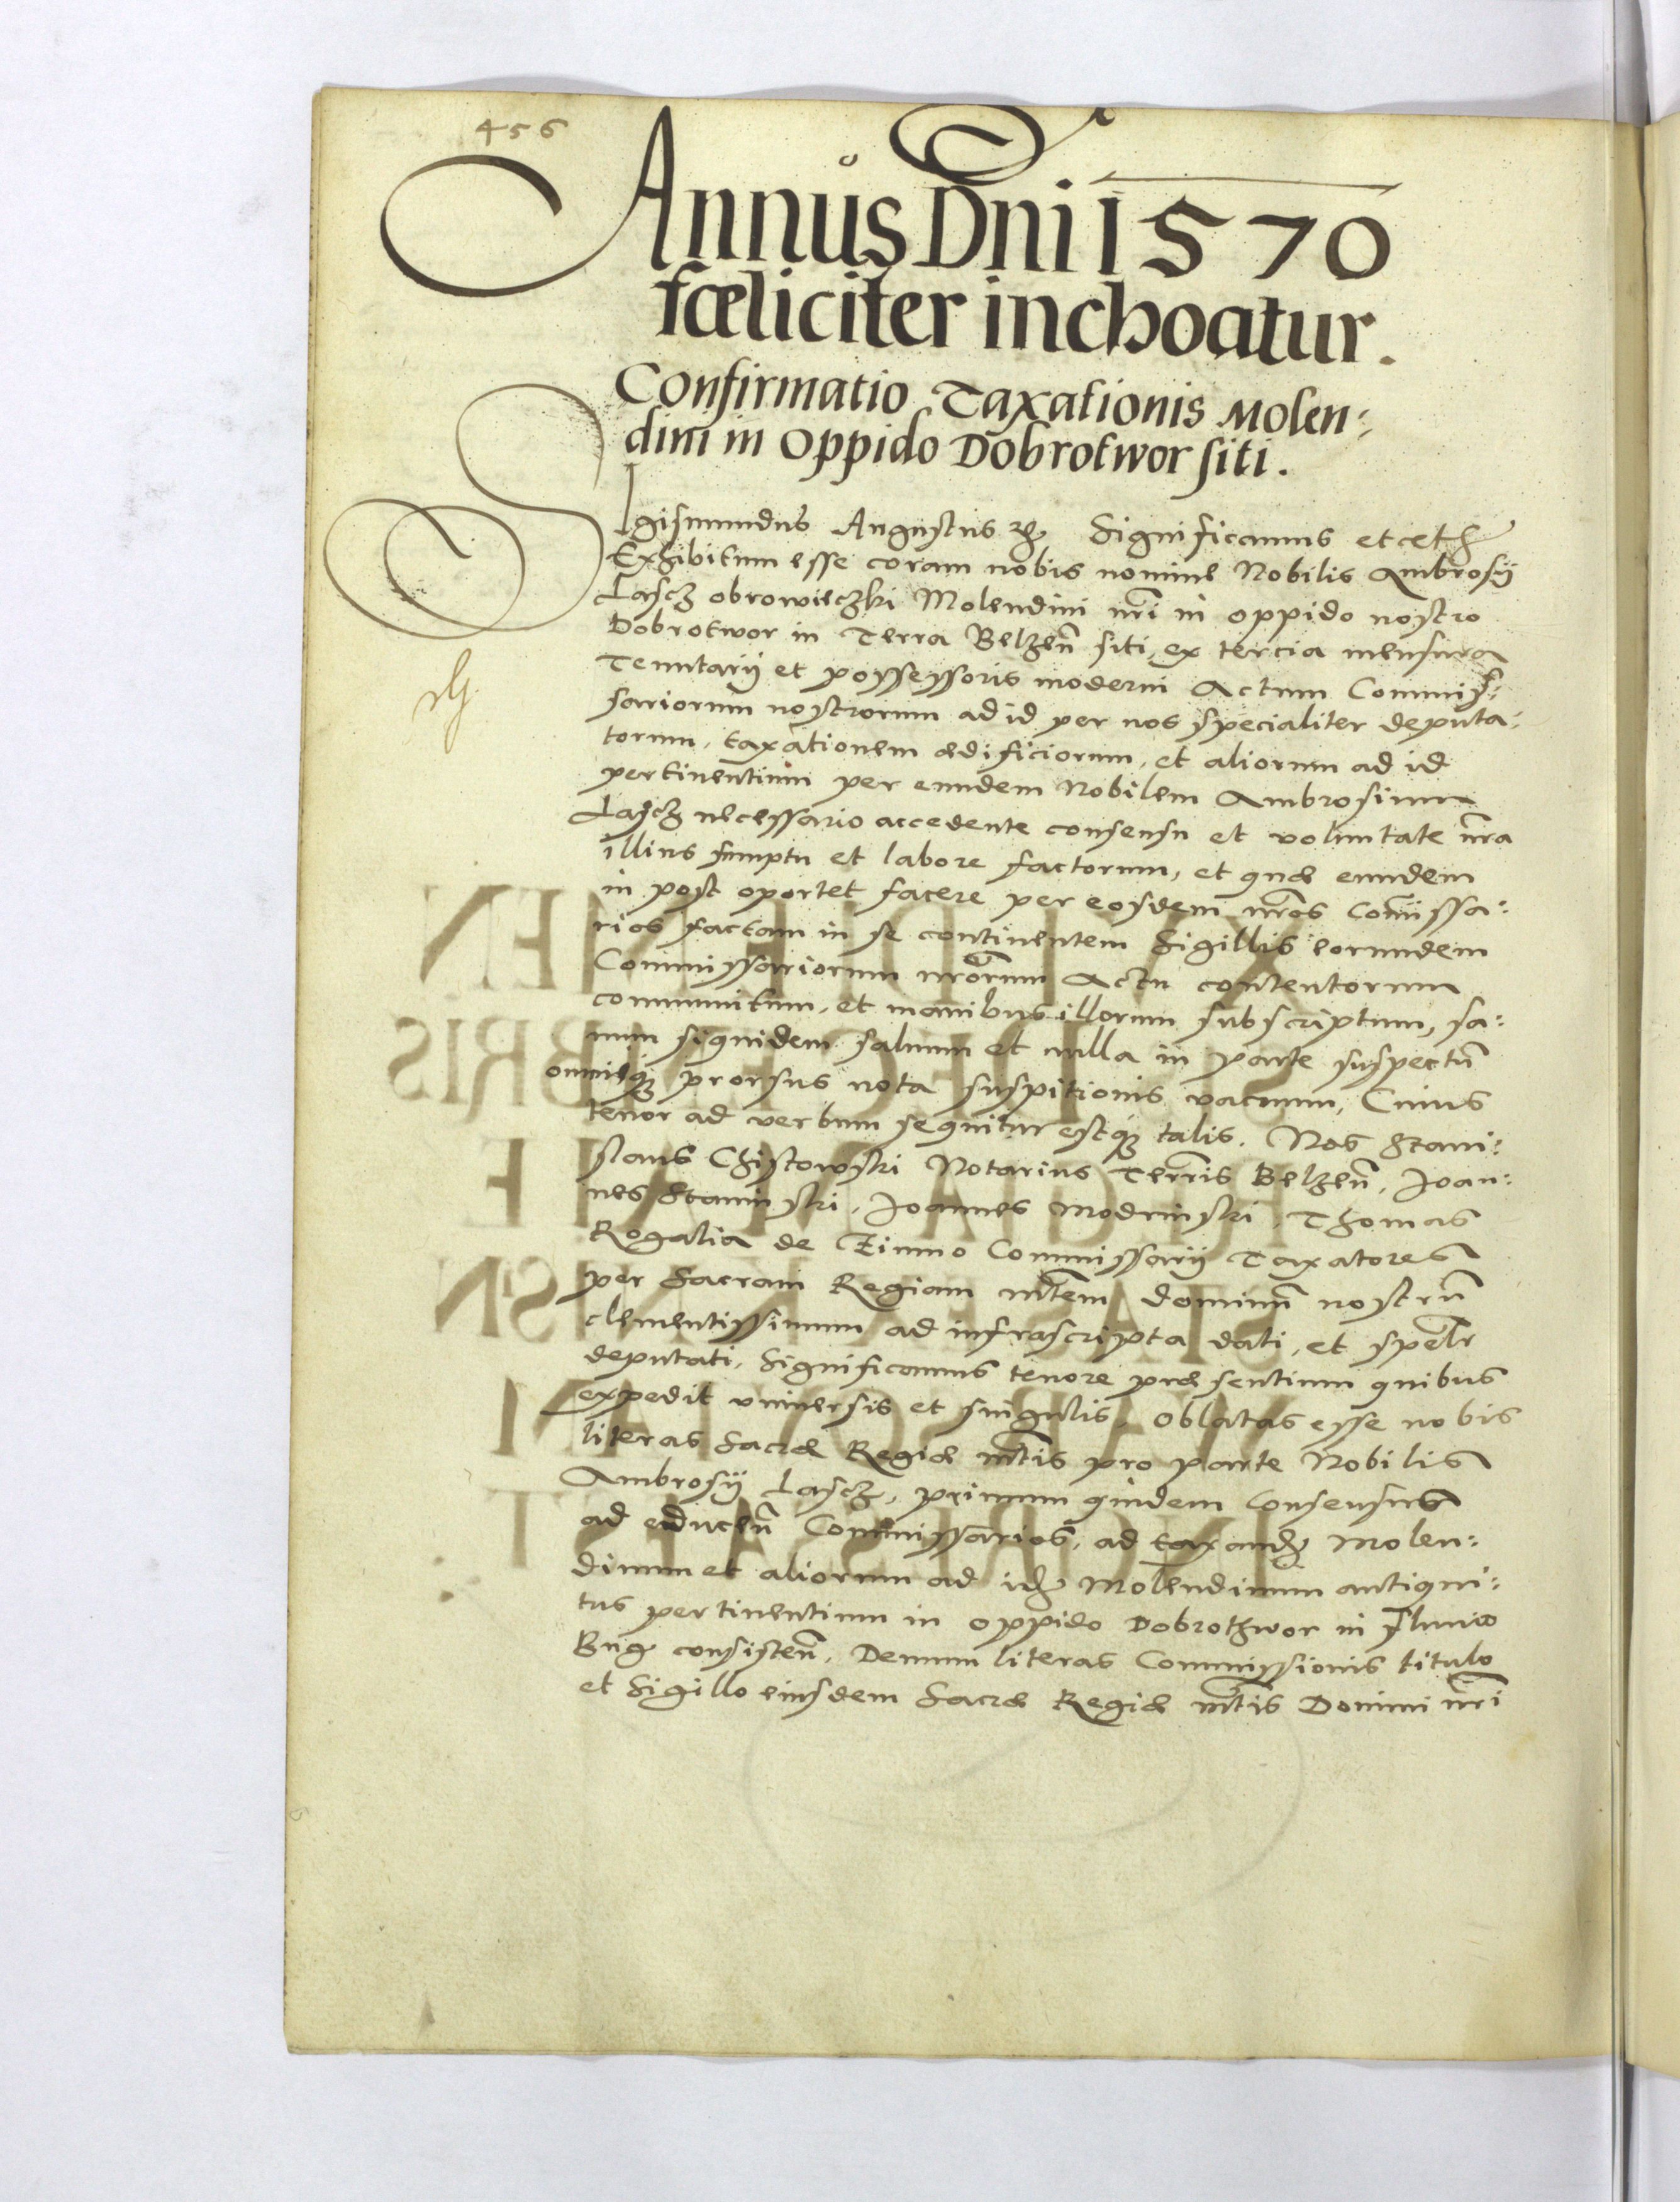 456
Annus Dni 1570
fœliciter inchoatur.
Confirmatio Taxationis Molen=
dini in Oppido Dobrotwor siti.
Sigismundus Augustus etc Significamus etceth
Exhibitum esse coram nobis nomine Nobilis Ambrosij
Lascz obrowieczki Molendini nri in oppido nostro
Dobrotwor in Terra Belzen siti, ex tercia mensura
Tenutarij et possessoris moderni Actum Commis=
sariorum nostrorum ad id per nos specialiter deputa=
torum, taxationem ædificiorum, et aliorum ad id
pertinentium per eundem Nobilem Ambrosium
Lascz necessario accedente consensu et voluntate nra
illius sumptu et labore factorum, et quæ eundem
in post oportet facere per eosdem nros Comissa=
rios factam in se continentem Sigillis eorundem
Commissariorum nrorum Actu contentorum
communitum, et manibus illorum subscriptum, sa=
num siquidem saluum et nulla in parte suspectu
omnique prorsus nota suspitionis vacuum, Cuius
tenor ad verbum sequitur estque talis. Nos Stani=
slaus Chstowski Notarius Terris Belzen, Joan=
nes Staminski, Joannes Modrinski, Thomas
Rogalia de Zimno Commissarij Taxatores
per Sacram Regiam mtem dominu nostru
clementissimum ad infrascripta dati, et spelr
deputati, Significamus tenore præsentium quibus
expedit vniuersis et singulis, Oblatas esse nobis
literas Sacræ Regiæ mtis pro parte Nobilis
Ambrosij Lascz, primum quidem Consensus
ad educen Commissarios, ad taxand Molen=
dinum et aliorum ad id Molendinum antiqui=
tus pertinentium in oppido Dobrothwor in fluuio
Bug consisten, Demum literas Commissionis titulo
et Sigillo eiusdem Sacræ Regiæ mtis Domini nri